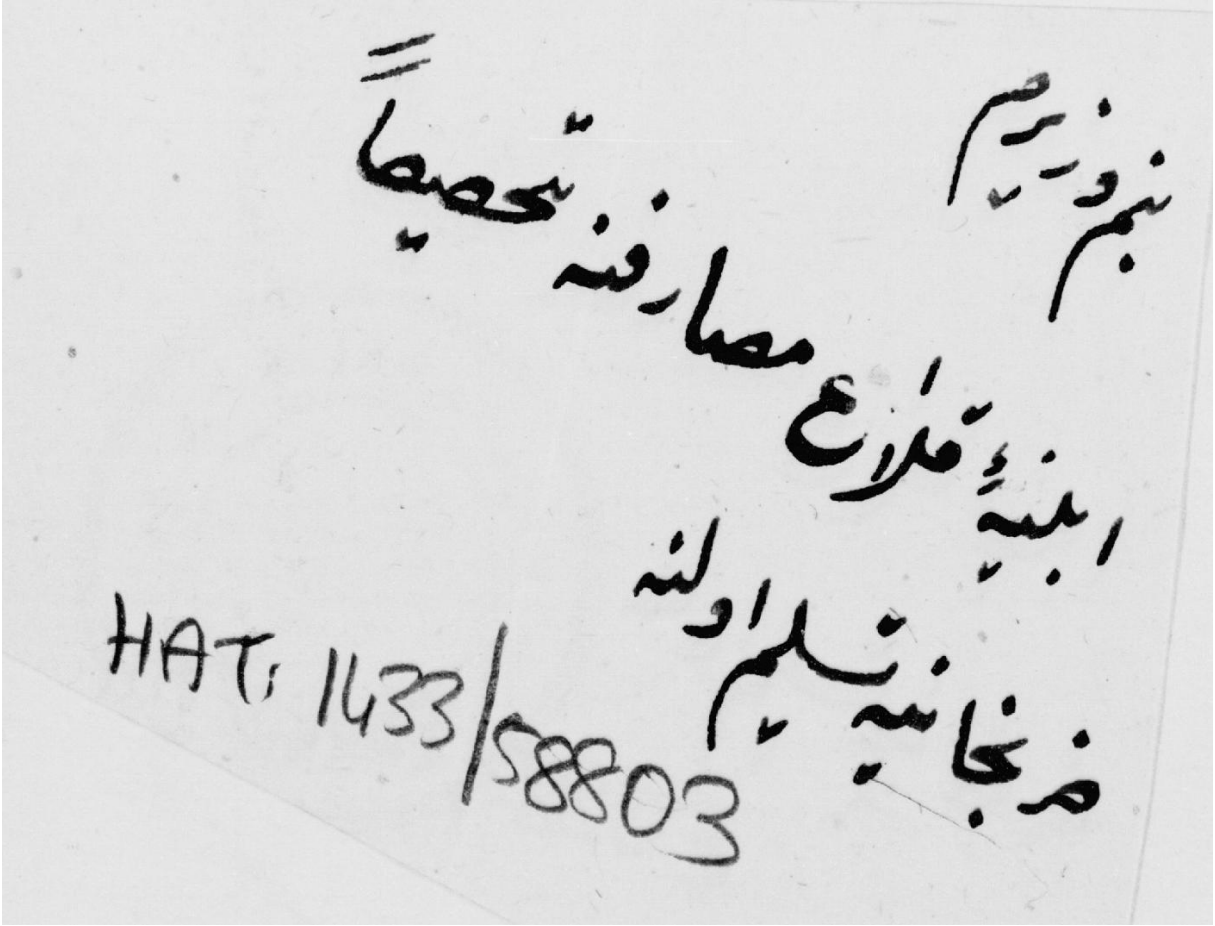 بنم وزيرم
ابنيهٔ قلاع مصارفنه تخصيصاً
ضربخانيه تسليم اولنه
HAT. 1433/58803